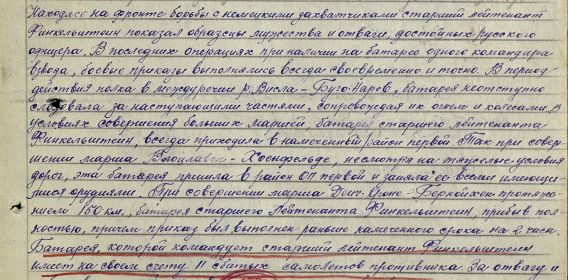 Находясь на фронте борьбы с немецкими захватчиками старший лейтенант
Финкельштейн показал образцы мужества и отваги, достойных русского
офицера. В последних операциях при наличии на батарее одного командира
взвода, боевые приказы выполнялись всегда своевременно и точно. В период
действия полка в междуречьи р. Висла - Буго-Нарев, батарея неотступно
следовала за наступающими частями, сопровождая их огнем и колесами. В
условиях совершения больших маршей, батарея старшего лейтенанта
Финкельштейн, всегда приходила в намеченный район первой. Так при совер
шении марша - Хоенфельде, несмотря на тяжелые условия
дорог, эта батарея пришла в район ОП первой и заняла ее всеми имеющи
мися орудиями. При совершении марша Дейч-Кроне - Бернойхен протяже
нием 150 км. батарея старшего лейтенанта Финкельштейн, прибыв пол
ностью, причем приказ был выполнен раньше намеченного срока на 2 часа.
Батарея, которой командует старший лейтенант Финкельштейн
имеет на своем счету 11 сбитых самолетов противника. За отвагу и